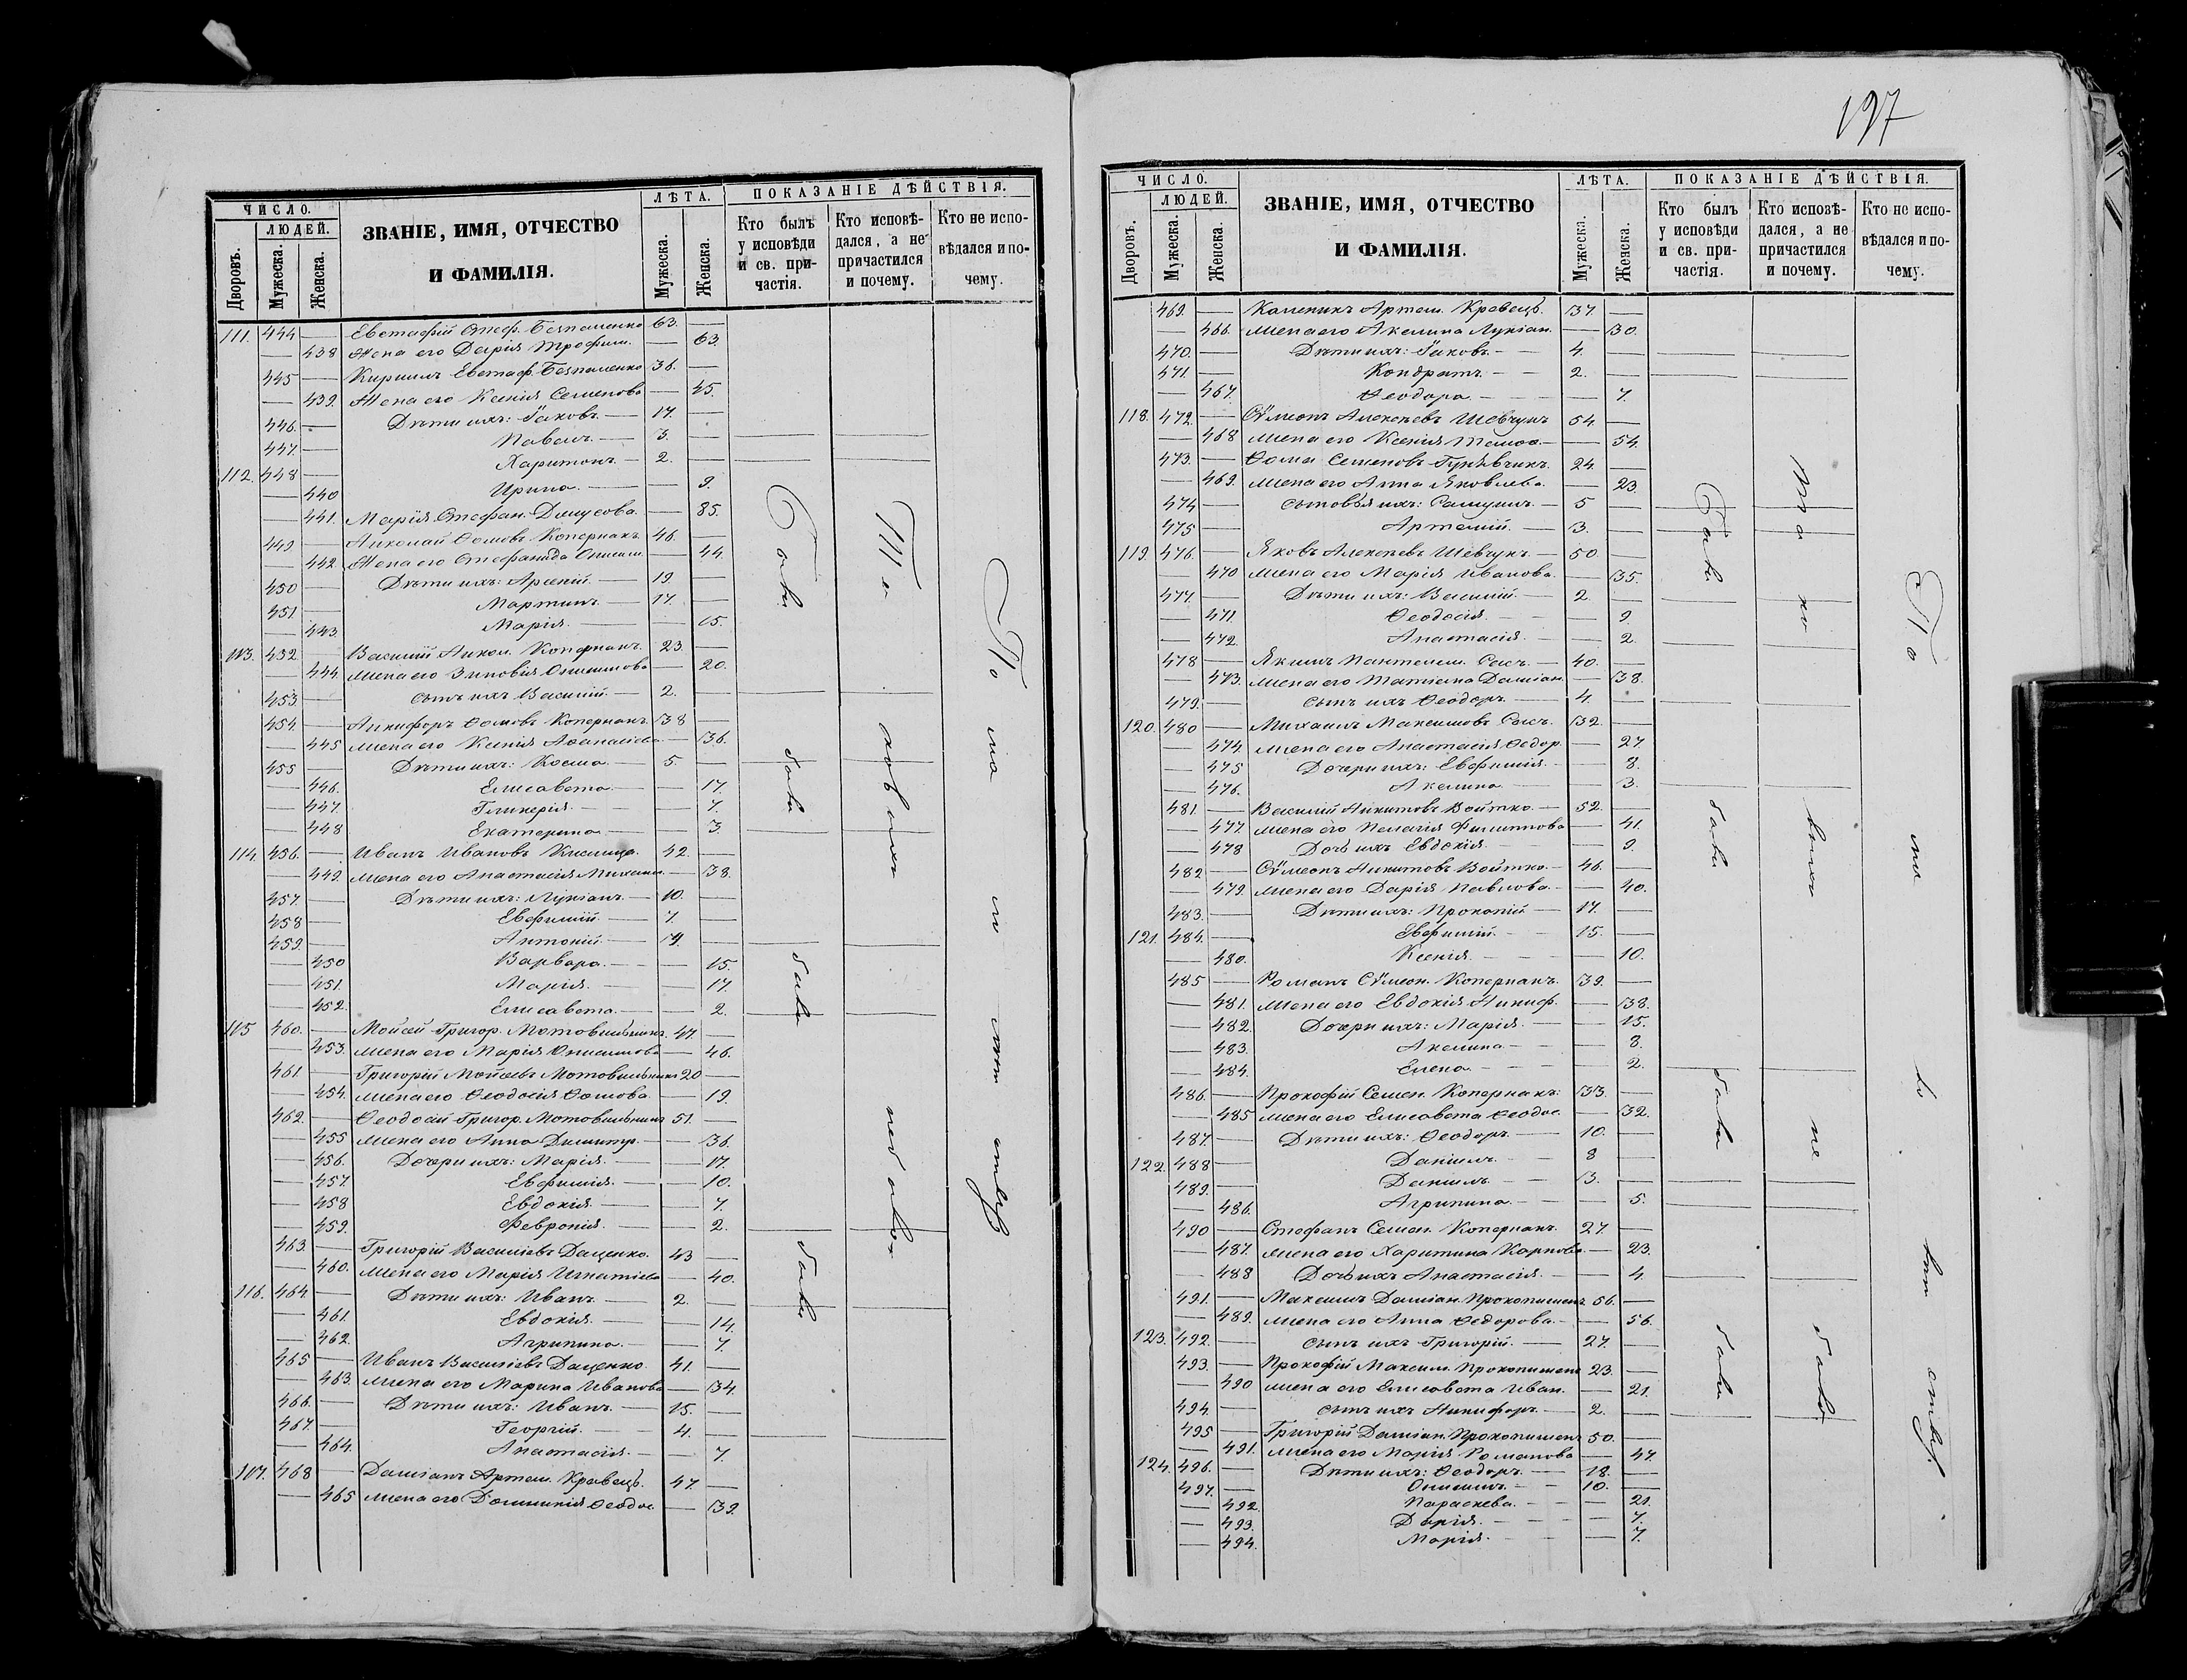 ЧИСЛО.
ЛЮДЕЙ.
Дворовъ.
Мужеска.
Женска.
ЗВАНІЕ, ИМЯ, ОТЧЕСТВО
И ФАМИЛІЯ.
ЛѢТА.
Мужеска.
Женска.
ПОКАЗАНІЕ ДѢЙСТВІЯ.
Кто былъ
у исповѣди
и св. при-
частія.
Кто исповѣ-
дался, а не
причастился
и почему.
Кто не испо-
вѣдался и по-
чему.
111. 444 — Евстафій Стеф. Безпаленко 63. —
— 438 Жена его Дарія Трофим. — 63.
445 — Кирилъ Евстаф. Безпаленко 36. —
— 439. Жена его Ксенія Семенова — 45.
446. — Дѣти ихъ: Іаковъ — 17. —
447. — Павелъ — 3. —
— Харитонъ — 2. —
112. 448 —
— 440 Ирина — 9.
— 441. Марія Стефан. — 85.
449 — Николай Ѳомовъ Копернакъ 46. —
— 442. Жена его Стефанида Онисим. — 44.
450 — Дѣти ихъ: Арсеній. — 19. —
451. — Мартинъ — 17. —
— 443 Марія — 15.
113. 432. — Василій Никол. Копернакъ 23. —
— 444. Жена его Зиновія Онисимова — 20.
453. — Сынъ ихъ Василій — 2. —
454. — Никифоръ Ѳомовъ Копернакъ 38 —
— 445 Жена его Ксенія Аѳанасіева — 36.
455 — Дѣти ихъ: Косма — 5. —
— 446. Елисавета — 17.
— 447. Гликерія — 7.
— 448 Екатерина — 3
114. 456. — Иванъ Ивановъ Кислица. 42. —
— 449. Жена его Анастасія Михаил. — 38.
457. — Дѣти ихъ: Лукіанъ — 10. —
458 — Евфимій — 7. —
459. — Антоній — —
— 450 Варвара — 15.
— 451. Марія — 17.
— 452. Елисавета — 2.
115 460. — Мойсей Григор. Мотовильникъ 47. —
— 453. Жена его Марія Онисимова — 46.
461 — Григорій Мойсеевъ Мотовильникъ 20 —
— 454. Жена его Ѳеодосія Ѳомова — 19.
462. — Ѳеодосій Григор. Мотовильникъ 51. —
— 455 Жена его Анна Димитр. — 36.
— 456. Дочери ихъ: Марія. — 17.
— 457. Евфимія — 10.
— 458 Евдокія — 7.
— 459. Февронія — 2.
463. — Григорій Василіевъ Даценко. 43 —
— 460. Жена его Марія Игнатіева — 40.
116. 464. — Дѣти ихъ: Иванъ — 2. —
— 461. Евдокія — 14.
— 462. Агрипина — 7.
465 — Иванъ Василіевъ Даценко. 41. —
— 463. Жена его Марина Иванова — 34.
466. — Дѣти ихъ: Иванъ — 15. —
467. — Георгій — 4. —
— 464. Анастасія — 7.
107. 468 — Даміанъ Артем. Кравецъ. 47. —
— 465 Жена его Домникія Ѳеодос. — 39.
были
были
были
были
То
197
ЧИСЛО.
ЛЮДЕЙ.
Дворовъ.
Мужеска.
Женска.
ЗВАНІЕ, ИМЯ, ОТЧЕСТВО
И ФАМИЛІЯ.
ЛѢТА.
Мужеска.
Женска.
ПОКАЗАНІЕ ДѢЙСТВІЯ.
Кто былъ
у исповѣди
и св. при-
частія.
Кто исповѣ-
дался, а не
причастился
и почему.
Кто не испо-
вѣдался и по-
чему.
469. — Калиникъ Артем. Кравецъ. 37. —
— 466. Жена его Акилина Лукіан. — 30.
470. — Дѣти ихъ: Іаковъ — 4. —
471. — Кондратъ — 2. —
— 467. Ѳеодора — 7.
118. 472. — Сѵмеонъ Алексѣевъ Шевчукъ 54. —
— 468 Жена его Ксенія — 54.
473. — Ѳома Семеновъ 24. —
— 469. Жена его Анна Яковлева. — 23.
474 — Сыновья ихъ: Самуилъ — 5 —
475 — Артемій — 3. —
119. 476. — Яковъ Алексѣевъ Шевчукъ — 50 —
— 470 Жена его Марія Иванова. — 35.
477. — Дѣти ихъ: Василій — 2. —
— 471. Ѳеодосія — 9.
— 472. Анастасія — 2.
478 — Якимъ Пантелим. Сасъ. — 40. —
— 473. Жена его Татіана Даміан. — 38.
479. — Сынъ ихъ Ѳеодоръ — 4. —
120. 480 — Михаилъ Максимовъ Сасъ. 32. —
— 474. Жена его Анастасія Ѳедор. — 27.
— 475 Дочери ихъ: Евфимія — 8.
— 476. Акилина — 3.
481. — Василій Никитовъ Войтко — 52. —
— 477. Жена его Пелагія Филиппова — 41.
— 478 Дочь ихъ Евдокія — 9.
482 — Сѵмеонъ Никитовъ Войтко — 46. —
— 479. Жена его Дарія Павлова. — 40.
483. — Дѣти ихъ: Прокопій — 17. —
121. 484. — Евфимій — 15. —
— 480. Ксенія — 10.
485 — Романъ Сѵмеон. Копернакъ. 39. —
— 481. Жена его Евдокія Никиф. — 38.
— 482. Дочери ихъ: Марія. — 15.
— 483. Акилина — 8.
— 484. Елена — 2.
486. — Прокофій Семен. Копернакъ. 33. —
— 485 Жена его Елисавета Ѳеодос. — 32.
487. — Дѣти ихъ: Ѳеодоръ — 10. —
122. 488 — Даніилъ — 8 —
489. — Даніилъ — 3. —
— 486. Агрипина — 5.
490 — Стефанъ Семен. Копернакъ. 27. —
— 487. Жена его Харитина Карпова — 23.
— 488 Дочь ихъ Анастасія — 4.
491. — Максимъ Даміан. 56. —
— 489. Жена его Анна Ѳедорова. — 56.
123. 492. — Сынъ ихъ Григорій — 27. —
493. — Прокофій Максим. 23. —
— 490 Жена его Елисавета Иван. — 21.
494. — Сынъ ихъ Никифоръ — 2. —
495 — Григорій Даміан. 50. —
— 491. Жена его Марія Романова — 47.
124. 496. — Дѣти ихъ: Ѳеодоръ — 18. —
497. — Онисимъ — 10. —
— 492. Параскева — 21.
— 493. Дарія — 7.
— 494. Марія — 7.
были
были
были
были
не
были